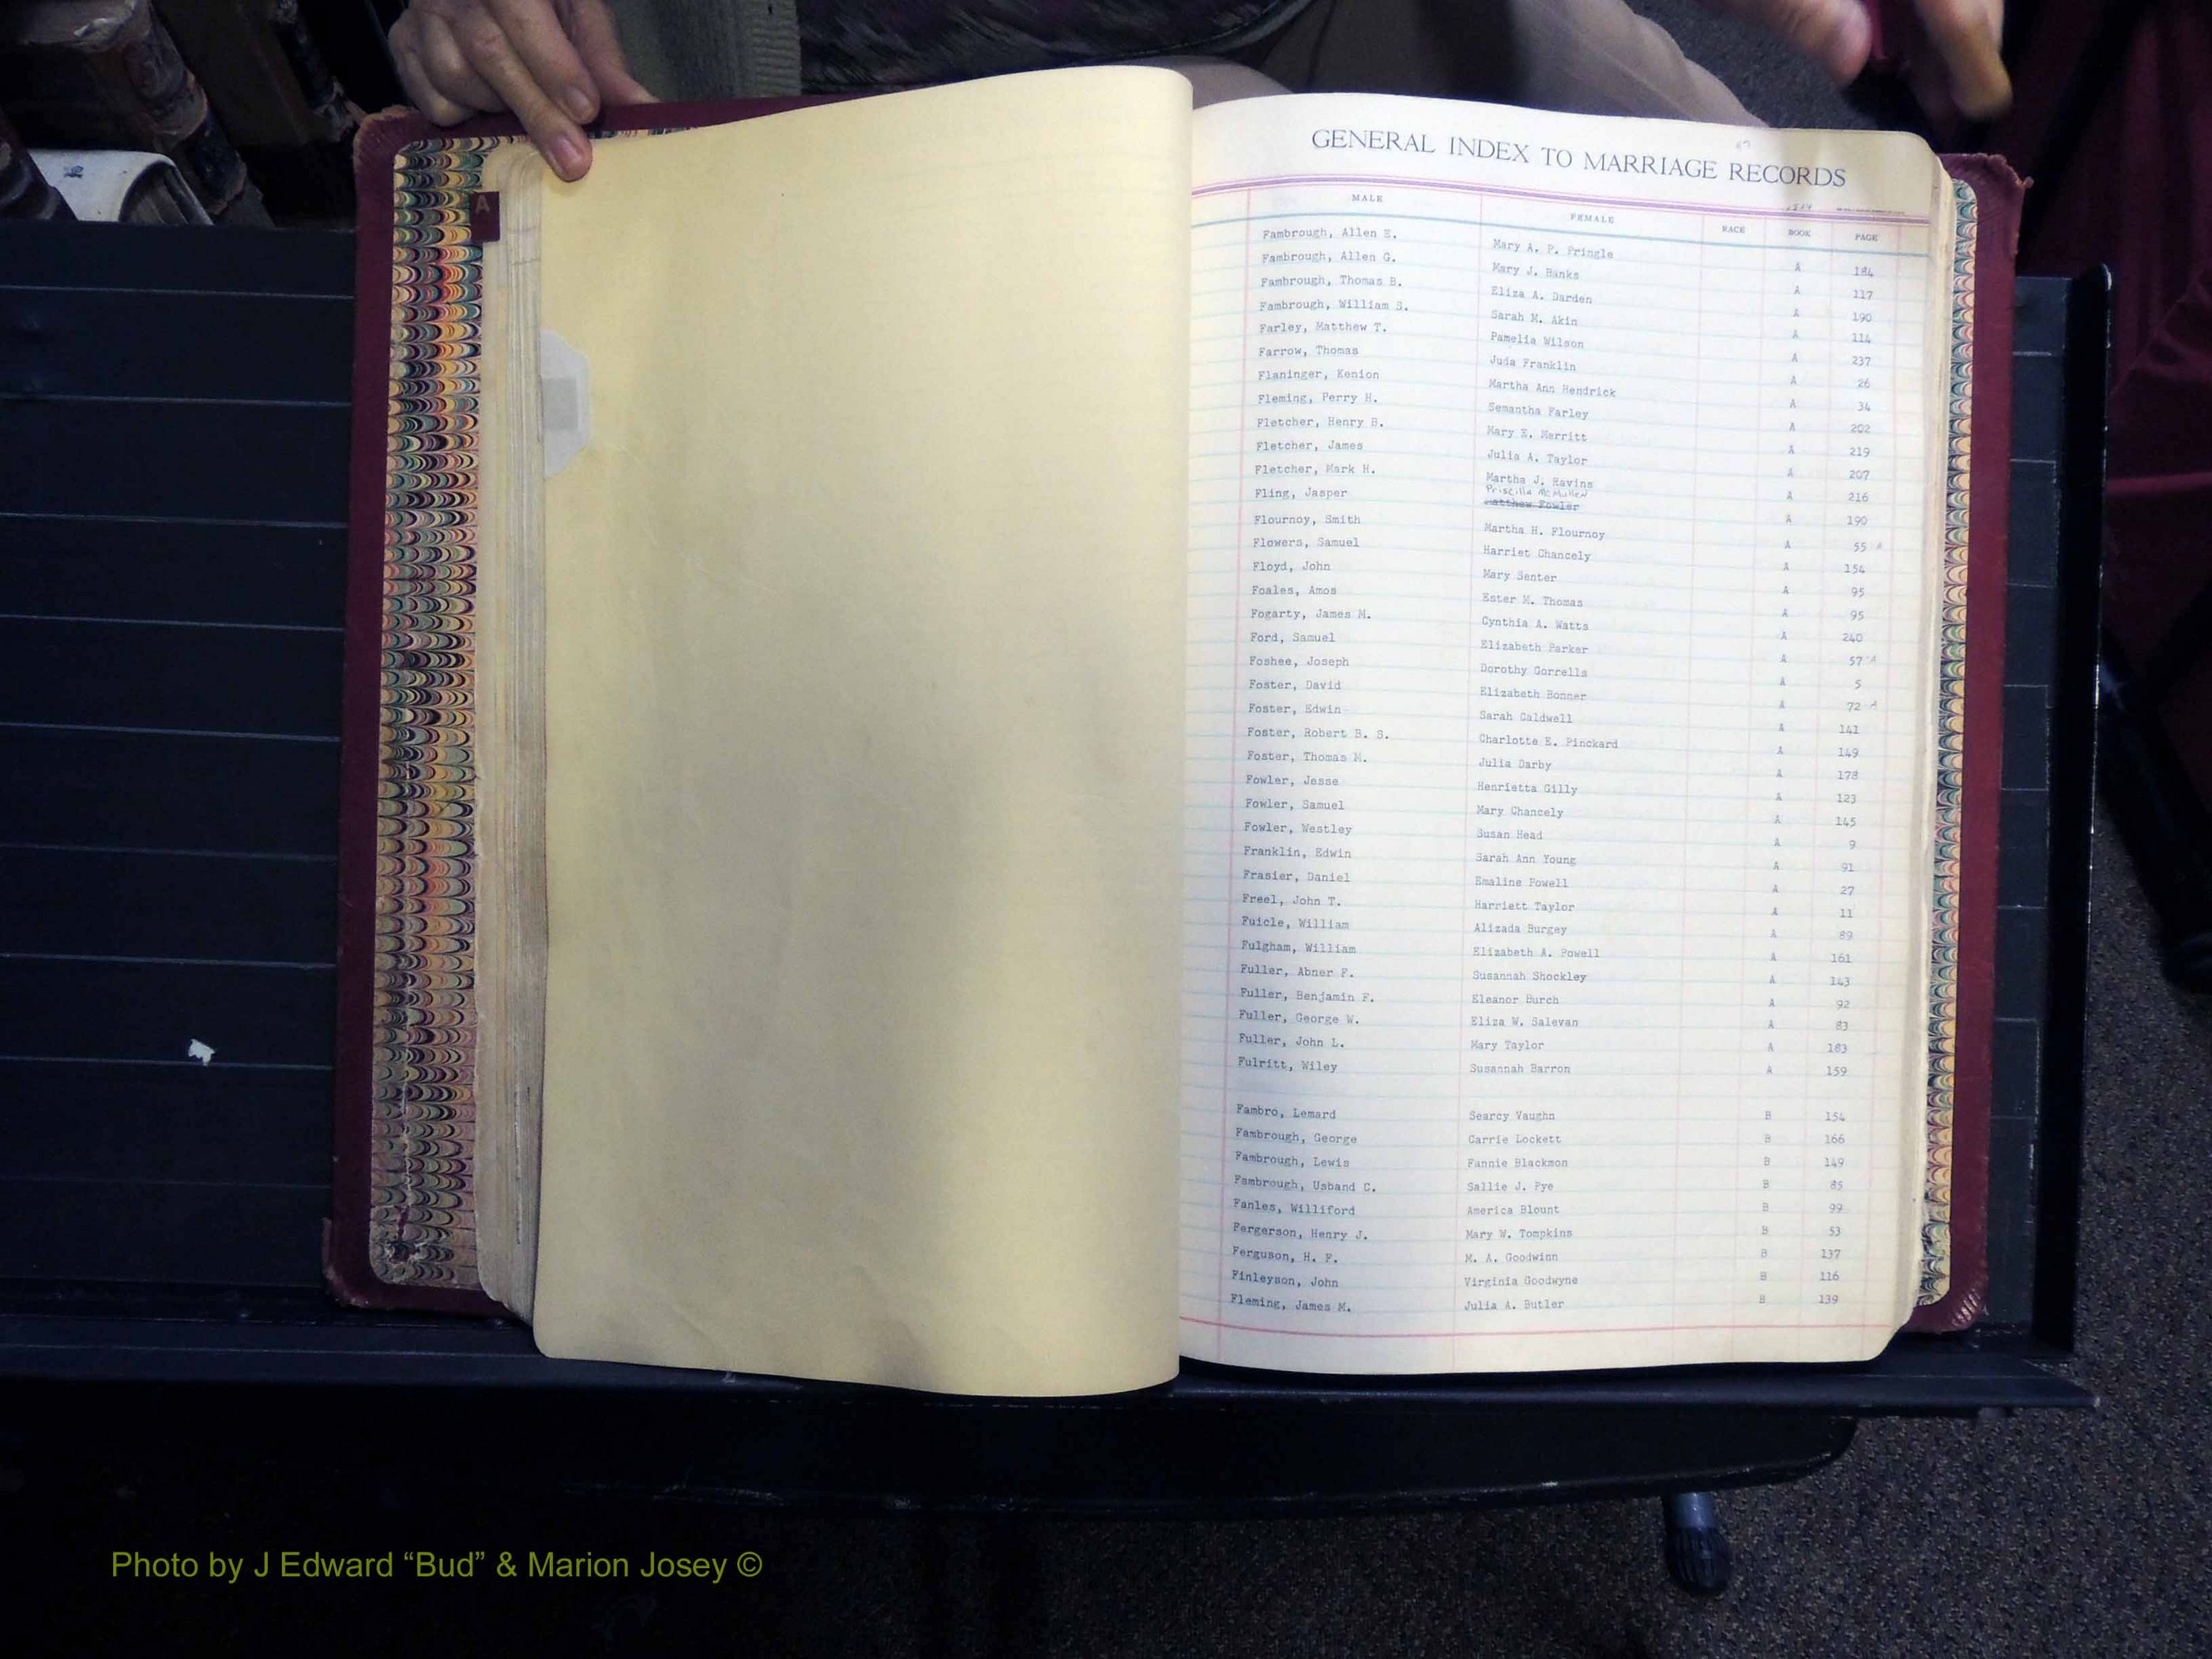 A
GENERAL INDEX TO MARRIAGE RECORDS
MALE FEMALE RACE BOOK PAGE
Fambrough, Allen E. Mary A. P. Pringle A 184
Fambrough, Allen G. Mary J. Banks A 117
Fambrough, Thomas B. Eliza A. Darden A 190
Fambrough, William S. Sarah M. Akin A 114
Farley, Matthew T. Pamelia Wilson A 237
Farrow, Thomas Juda Franklin A 26
Flaninger, Kenion Martha Ann Hendrick A 34
Fleming, Perry H. Semantha Farley A 202
Fletcher, Henry B. Mary E. Merritt A 219
Fletcher, James Julia A. Taylor A 207
Fletcher, Mark H. Martha J. Ravins A 216
Priscilla McMullen
Fling, Jasper Matthew Fowler A 190
Flournoy, Smith Martha H. Flournoy A 55 A
Flowers, Samuel Harriet Chancely A 154
Floyd, John Mary Senter A 95
Foales, Amos Ester M. Thomas A 95
Fogarty, James M. Cynthia A. Watts A 240
Ford, Samuel Elizabeth Parker A 57 A
Foshee, Joseph Dorothy Gorrells A 5
Foster, David Elizabeth Bonner A 72 A
Foster, Edwin Sarah Caldwell A 141
Foster, Robert B. S. Charlotte E. Pinckard A 149
Foster, Thomas M. Julia Darby A 178
Fowler, Jesse Henrietta Gilly A 123
Fowler, Samuel Mary Chancely A 145
Fowler, Westley Susan Head A 9
Franklin, Edwin Sarah Ann Young A 91
Frasier, Daniel Emaline Powell A 27
Freel, John T. Harriett Taylor A 11
Fuicle, William Alizada Burgey A 89
Fulgham, William Elizabeth A. Powell A 161
Fuller, Abner F. Susannah Shockley A 143
Fuller, Benjamin F. Eleanor Burch A 92
Fuller, George W. Eliza W. Salevan A 83
Fuller, John L. Mary Taylor A 183
Fulritt, Wiley Susannah Barron A 159
Fambro, Lemard Searcy Vaughn B 154
Fambrough, George Carrie Lockett B 166
Fambrough, Lewis Fannie Blackmon B 149
Fambrough, Usband C. Sallie J. Pye B 85
Fanles, Williford America Blount B 99
Fergerson, Henry J. Mary W. Tompkins B 53
Ferguson, H. F. M. A. Goodwinn B 137
Finleyson, John Virginia Goodwyne B 116
Fleming, James M. Julia A. Butler B 139
Photo by J Edward “Bud” & Marion Josey ©